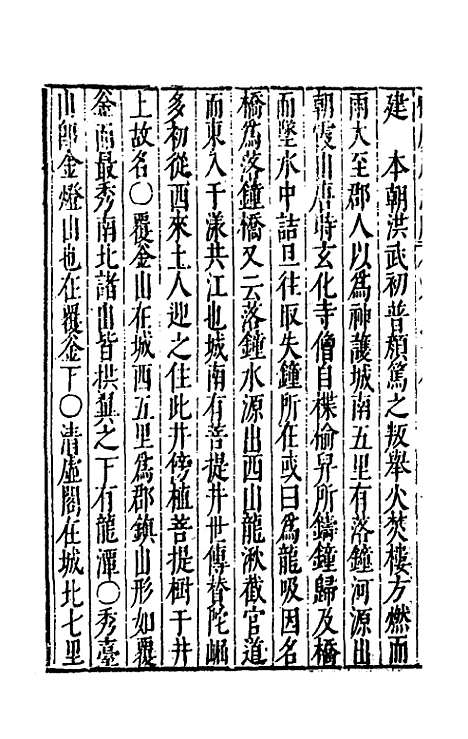 建　本朝洪武初普顏篤之叛舉火焚樓方燃而
雨大至郡人以為神護城南五里有落鐘河源出
朝霞山唐時玄化寺僧自楪榆舁所鑄鐘歸及橋
而墜水中詰旦往取失鐘所在或曰為龍吸因名
橋為落鐘橋又云落鐘水源出西山龍湫截官道
而東入于漾共江也城南有菩提井世傳贊陀崛
多初從西來土人迎之住此井傍植菩提樹于井
上故名〇覆釜山在城西五里為郡鎮山形如覆
釜而最秀南北諸山皆拱翼之下有龍潭〇秀臺
山即金燈山也在覆釜下〇清虛閣在城北七里